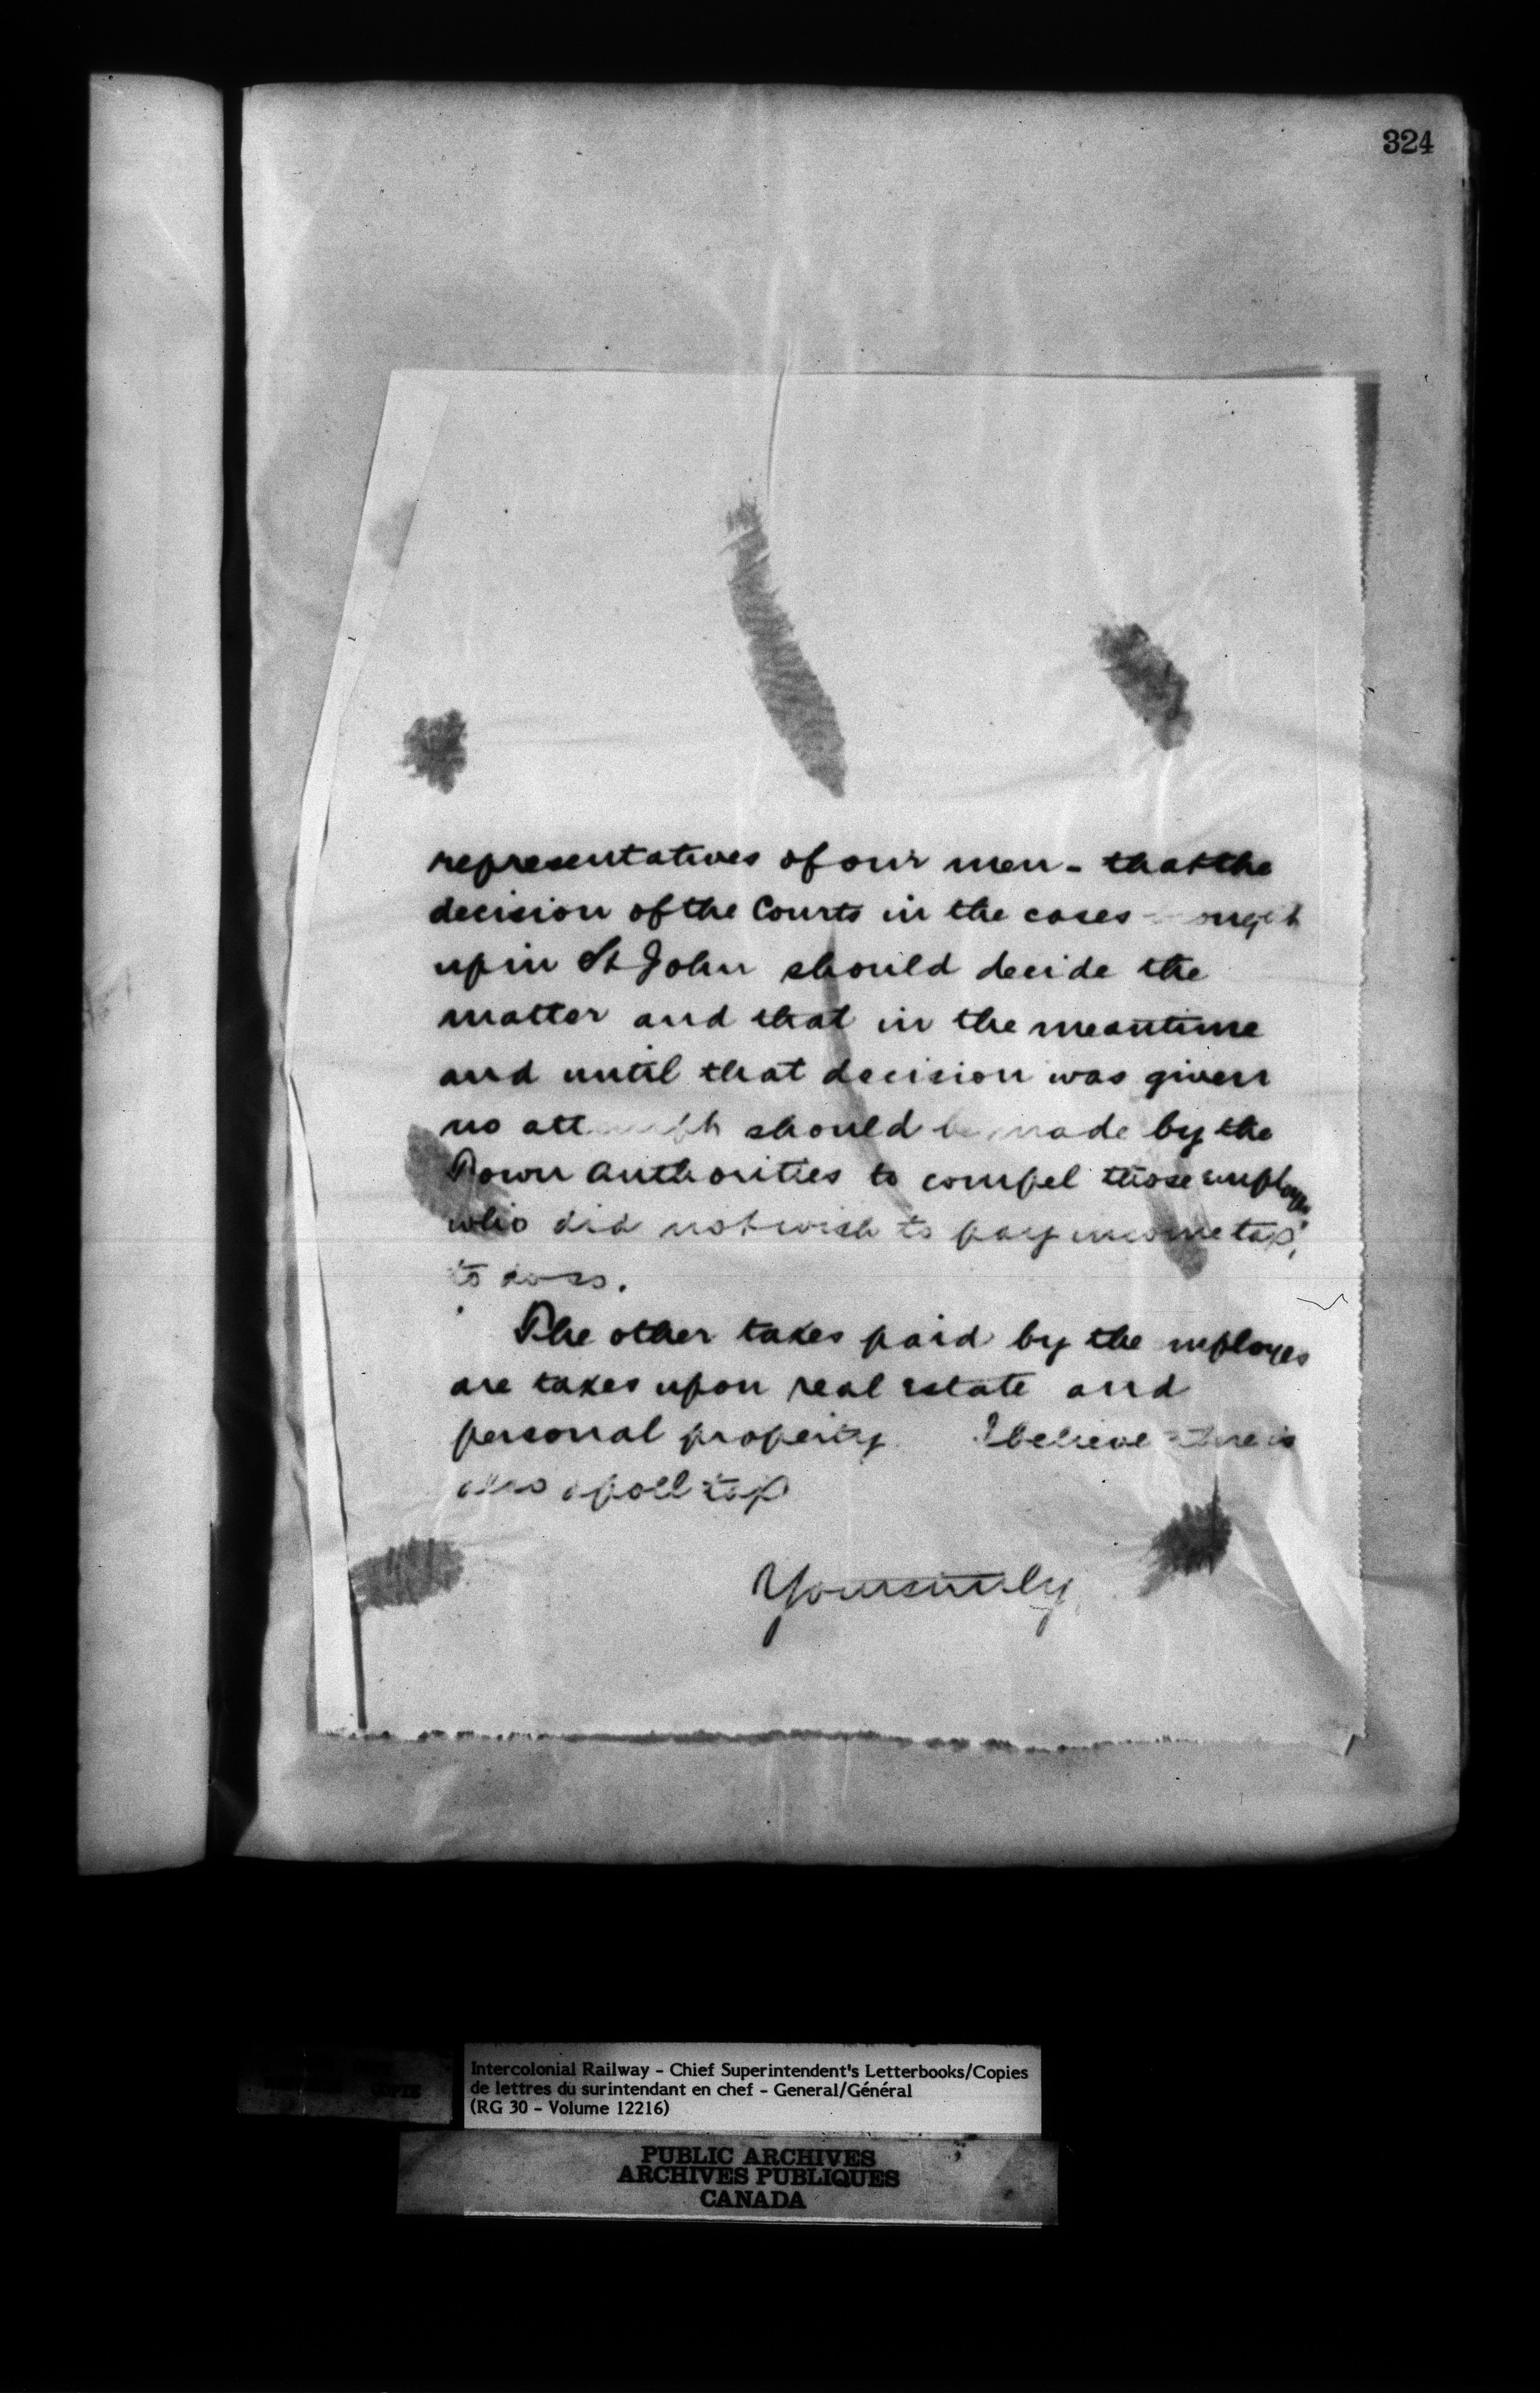 324
representatives of our men - that the
decision of the Courts in the cases
up in St John should decide the
matter and that in the meantime
and until that decision was given
no should be made by the
Town authorities to compel those employes
who did not wish to pay income tax,
to do so.
The other taxes paid by the employes
are taxes upon real estate and
personal property. I believe there is
also a poll tax
Yours truly
Intercolonial Railway - Chief Superintendent's Letterbooks/Copies
de lettres du surintendant en chef - General/Général
(RG 30 - Volume 12216)
PUBLIC ARCHIVES
ARCHIVES PUBLIQUES
CANADA